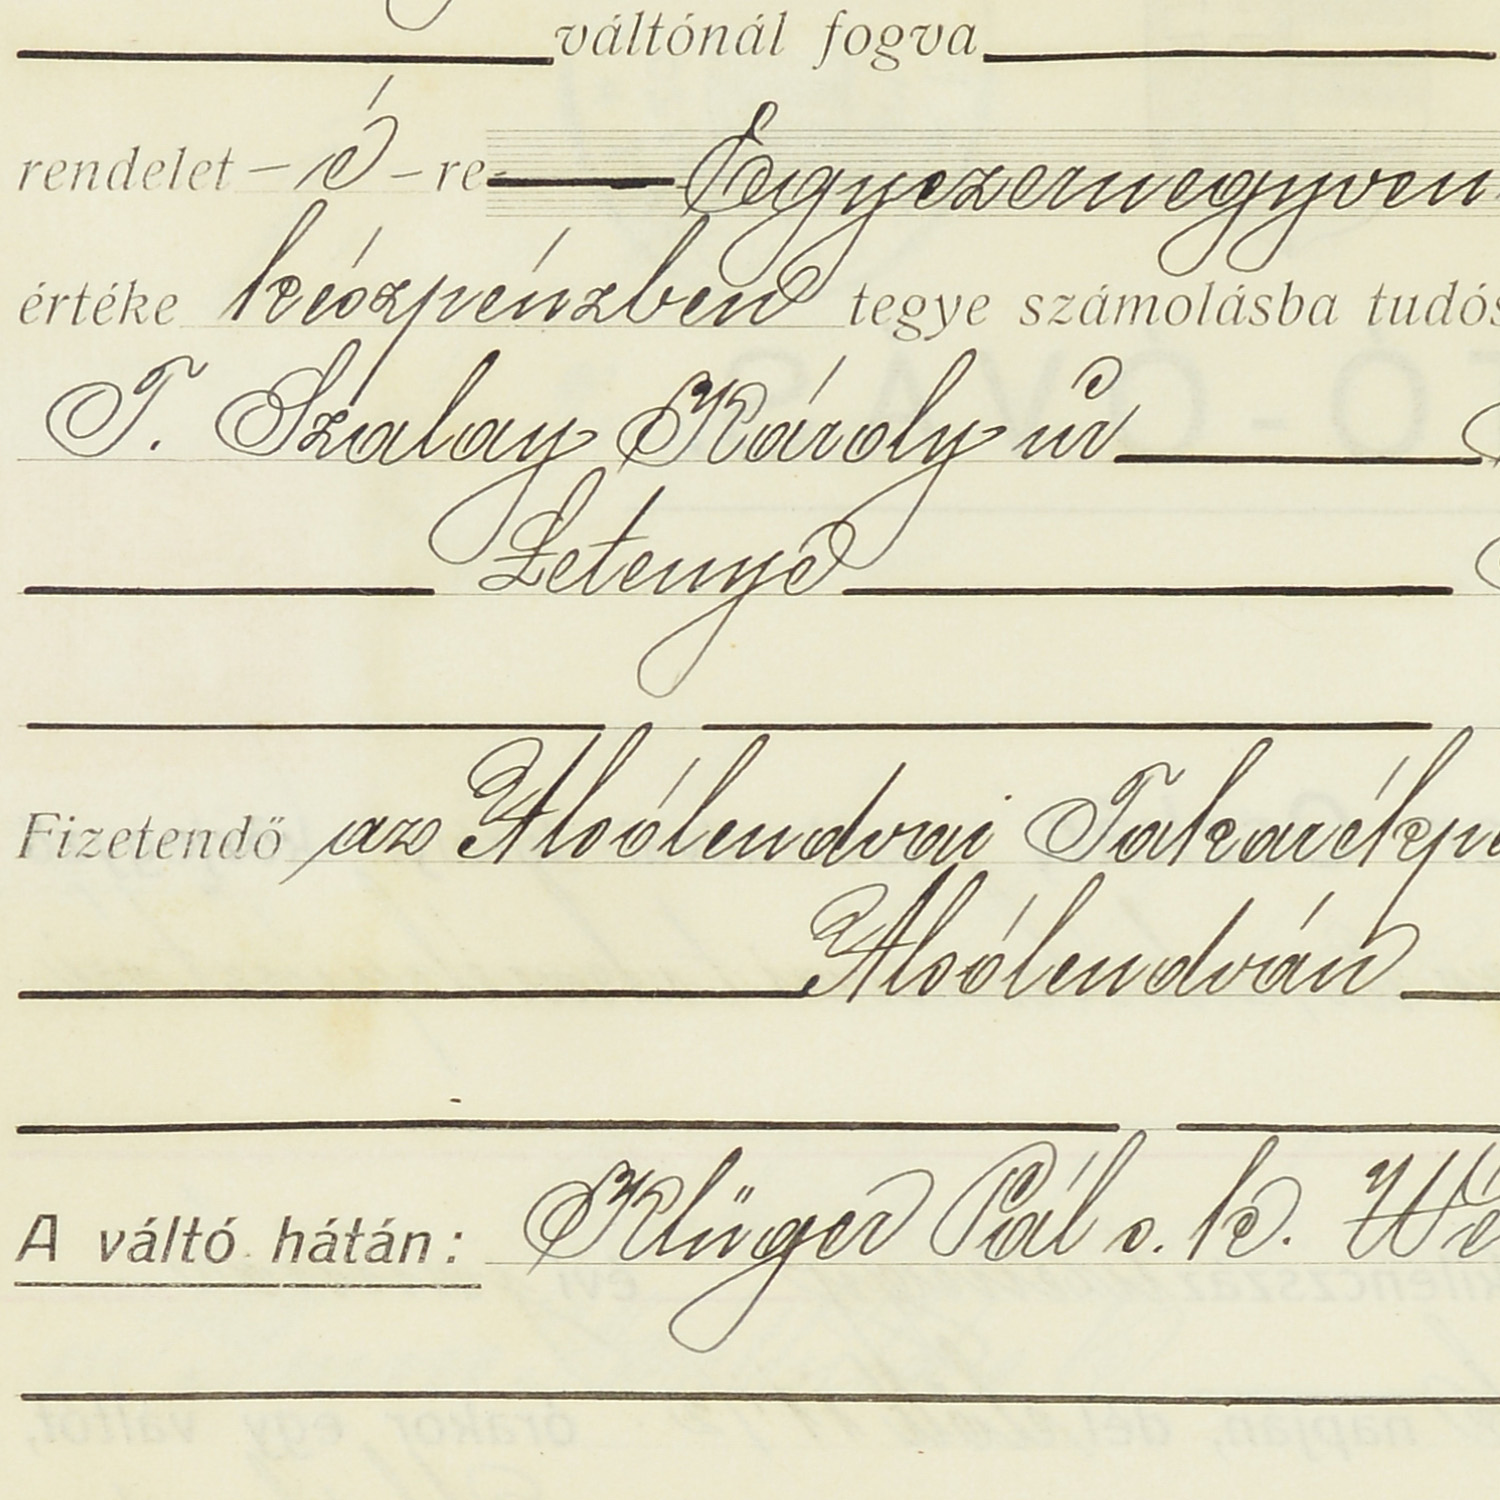 váltónál fogva
rendelet – é – re Egyezernegyven
értéke készpénzben tegye számolásba tudós
T. Szalay Károly úr
Letenye
Fizetendő az Alsólendvai Takarékp
Alsólendván
A váltó hátán: Klüger Pál s. k. Wé